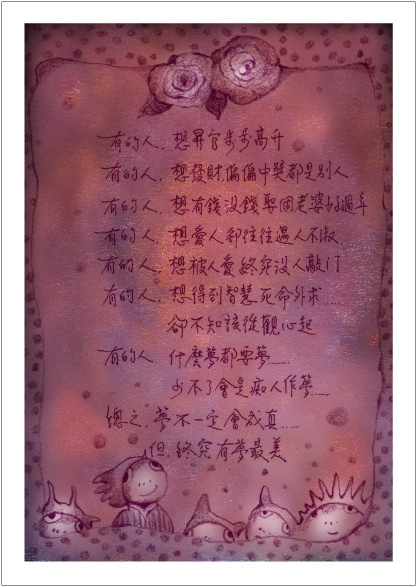 有的人，想昇官步步高升
有的人，想發財偏偏中獎都是別人
有的人，想有錢沒錢娶個老婆好過年
有的人，想愛人卻往往遇人不淑
有的人，想被人愛終究沒人敲門
有的人，想得到智慧死命外求……
卻不知該從觀心起
有的人，什麼夢都要夢……
少不了會是痴人作夢……
總之，夢不一定會成真……
但，終究有夢最美